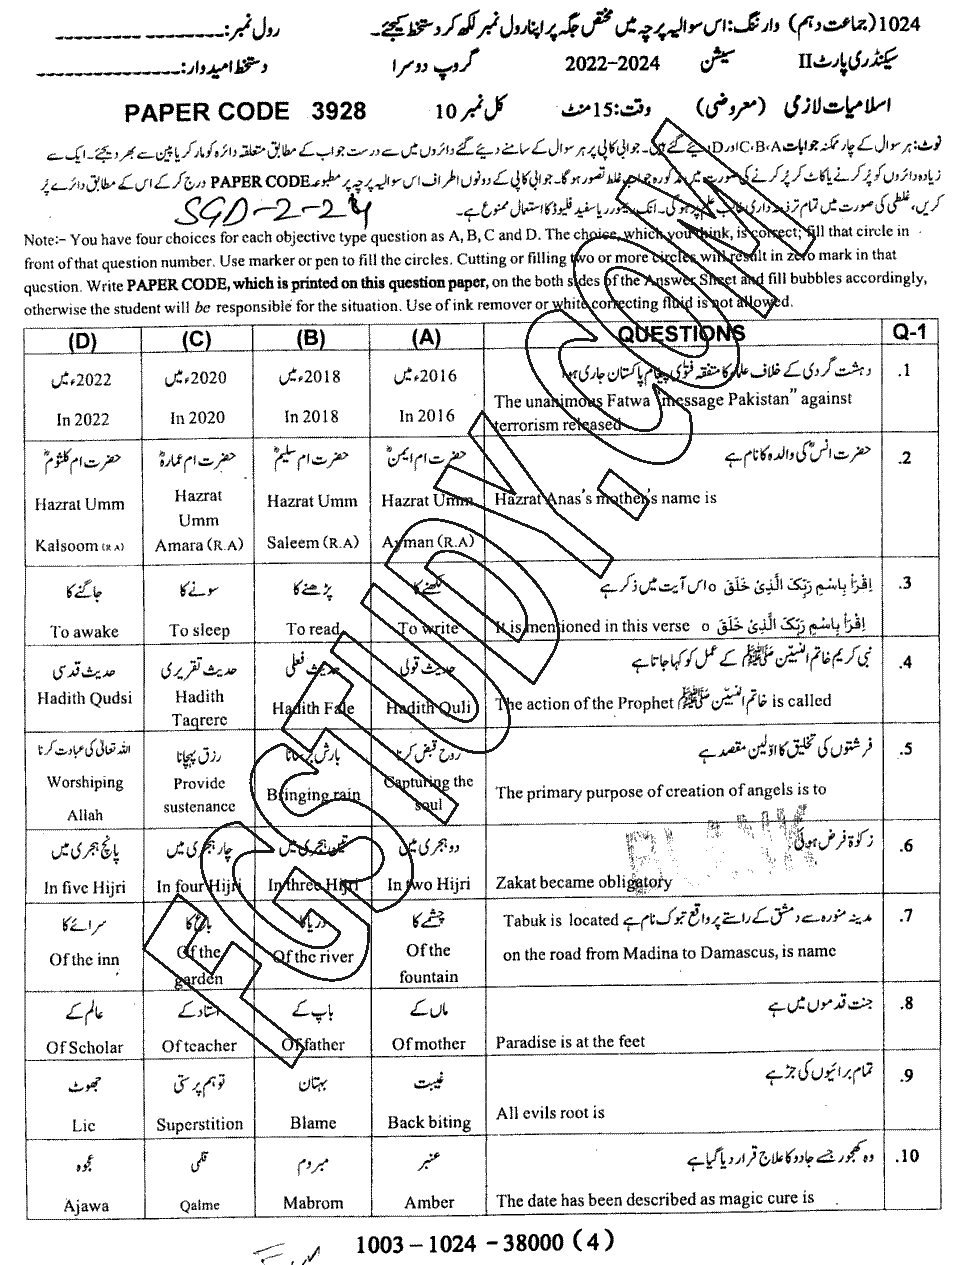 1024 (جماعت دہم) وارننگ: اس سوالیہ پرچہ میں مختص جگہ پر اپنا رول نمبر لکھ کر دستخط کیجئے۔ رول نمبر:
سیکنڈری پارٹ II سیشن 2022-2024 گروپ دوسرا دستخط امیدوار:
اسلامیات لازمی (معروضی) وقت: 15 منٹ کل نمبر 10 PAPER CODE 3928
نوٹ: ہر سوال کے چار ممکنہ جوابات C،B،A اور D دیئے گئے ہیں۔ جوابی کاپی پر ہر سوال کے سامنے دیئے گئے دائروں میں سے درست جواب کے مطابق متعلقہ دائرہ کو مارکر یا پین سے بھر دیجئے۔ ایک سے
زیادہ دائروں کو پُر کرنے یا کاٹ کر پُر کرنے کی صورت میں مذکورہ جواب غلط تصور ہوگا۔ جوابی کاپی کے دونوں اطراف اس سوالیہ پرچہ پر مطبوعہ PAPER CODE درج کر کے اس کے مطابق دائرے پُر
کریں، غلطی کی صورت میں تمام تر ذمہ داری طالب علم پر ہوگی۔ انک ریموور یا سفید فلیوڈ کا استعمال ممنوع ہے۔ SGD-2-24
Note:- You have four choices for each objective type question as A, B, C and D. The choice, which you think, is correct; fill that circle in
front of that question number. Use marker or pen to fill the circles. Cutting or filling two or more circles will result in zero mark in that
question. Write PAPER CODE, which is printed on this question paper, on the both sides of the Answer Sheet and fill bubbles accordingly,
otherwise the student will be responsible for the situation. Use of ink remover or white correcting fluid is not allowed.
(D) (C) (B) (A) QUESTIONS Q-1
2022ء میں 2020ء میں 2018ء میں 2016ء میں دہشت گردی کے خلاف علما کا متفقہ فتوٰی پیغام پاکستان جاری ہوا .1
In 2022 In 2020 In 2018 In 2016 The unanimous Fatwa "message Pakistan" against
terrorism released
حضرت ام کلثومؓ حضرت ام عمارہؓ حضرت ام سلیمؓ حضرت ام ایمنؓ حضرت انسؓ کی والدہ کا نام ہے .2
Hazrat Umm Hazrat Umm Hazrat Umm Hazrat Umm Hazrat Anas's mother's name is
Kalsoom (R.A) Amara (R.A) Saleem (R.A) Ayman (R.A)
جاگنے کا سونے کا پڑھنے کا لکھنے کا اِقْرَاْ بِاسْمِ رَبِّکَ الَّذِیْ خَلَقَ o اس آیت میں ذکر ہے .3
To awake To sleep To read To write It is mentioned in this verse اِقْرَاْ بِاسْمِ رَبِّکَ الَّذِیْ خَلَقَ o
حدیث قدسی حدیث تقریری حدیث فعلی حدیث قولی نبی کریم خاتم النبیین ﷺ کے عمل کو کہا جاتا ہے .4
Hadith Qudsi Hadith Taqrere Hadith Fale Hadith Quli The action of the Prophet خاتم النبیین ﷺ is called
اللہ تعالیٰ کی عبادت کرنا رزق پہچانا بارش برسانا روح قبض کرنا فرشتوں کی تخلیق کا اوّلین مقصد ہے .5
Worshiping Allah Provide sustenance Bringing rain Capturing the soul The primary purpose of creation of angels is to
پانچ ہجری میں چار ہجری میں تین ہجری میں دو ہجری میں زکوٰۃ فرض ہوئی .6
BLANK
In five Hijri In four Hijri In three Hijri In two Hijri Zakat became obligatory
سرائے کا باغ کا دریا کا چشمے کا مدینہ منورہ سے دمشق کے راستے پر واقع تبوک نام ہے Tabuk is located .7
Of the inn Of the garden Of the river Of the fountain on the road from Madina to Damascus, is name
عالم کے استاد کے باپ کے ماں کے جنت قدموں میں ہے .8
Of Scholar Of teacher Of father Of mother Paradise is at the feet
جھوٹ توہم پرستی بہتان غیبت تمام برائیوں کی جڑ ہے .9
Lie Superstition Blame Back biting All evils root is
عجوہ قلمی مبروم عنبر وہ کھجور جسے جادو کا علاج قرار دیا گیا ہے .10
Ajawa Qalme Mabrom Amber The date has been described as magic cure is
1003 – 1024 – 38000 (4)
FGSTUDY.COM